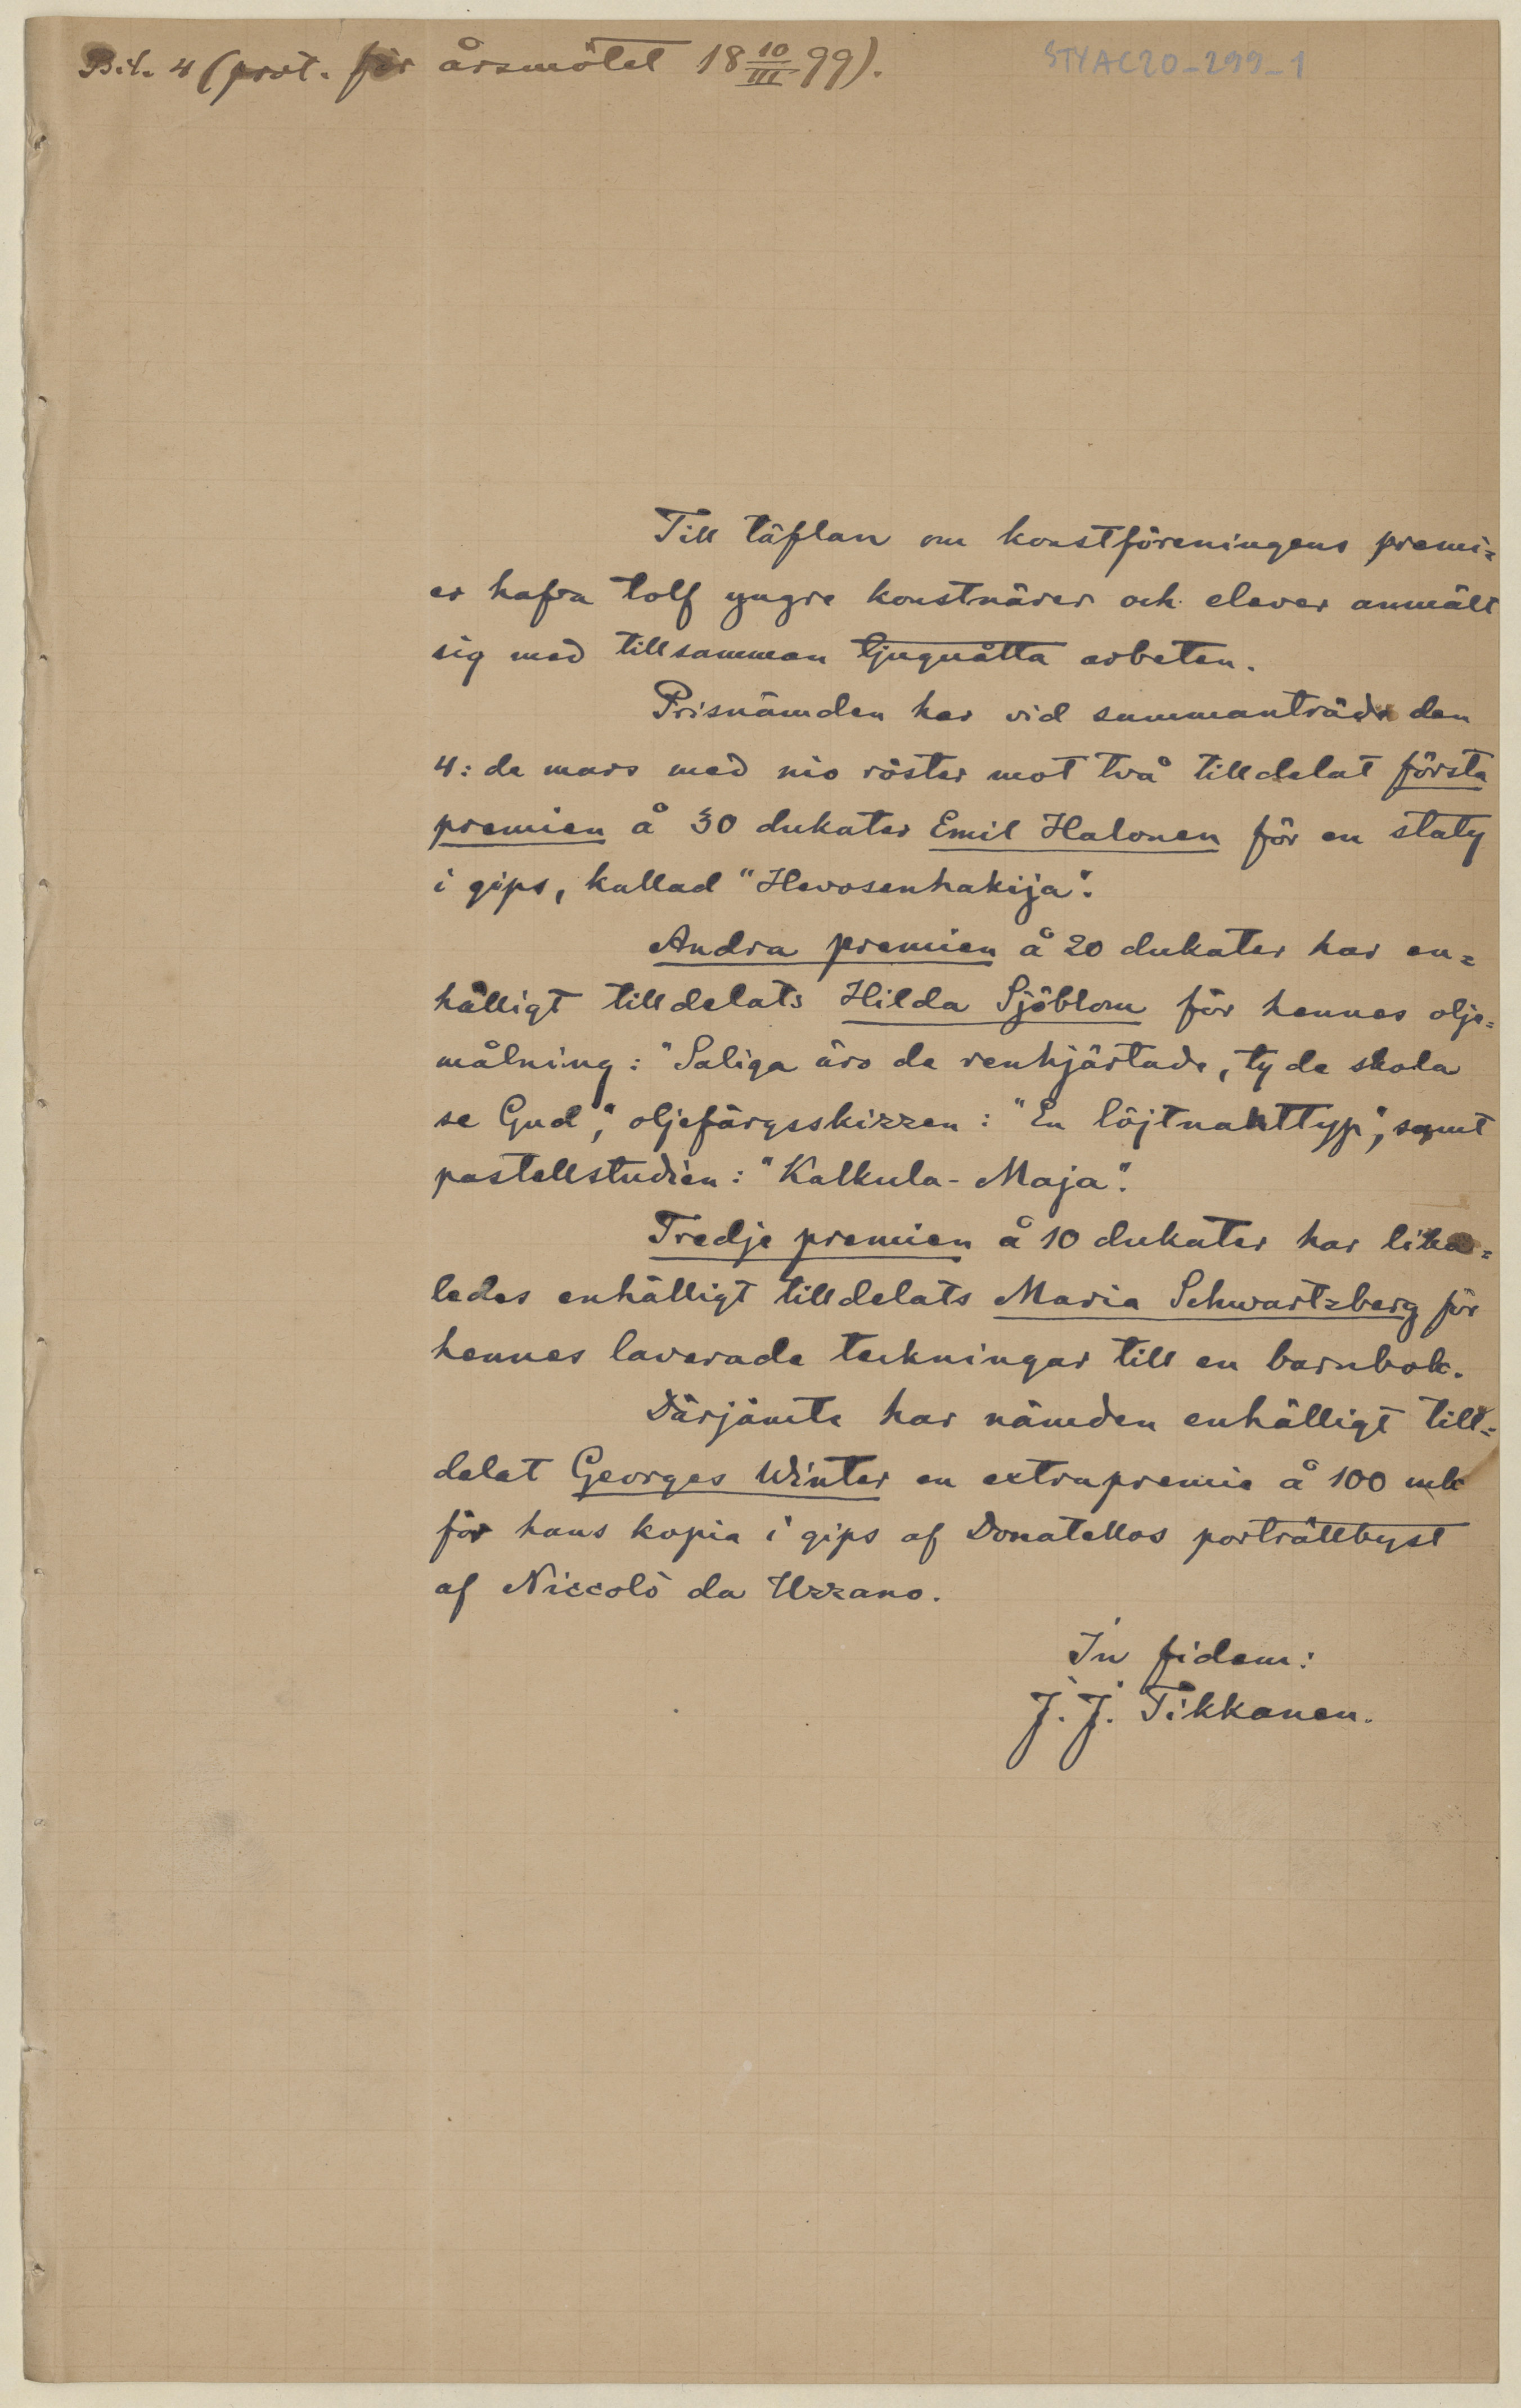 Bil. 4 (prot. för årsmötet 18 10/III 99).
STYAC20-299-1
Till täflan om konstföreningens premi=
er hafva tolf yngre konstnärer och elever anmält
sig med tillsamman tjuguåtta arbeten.
Prisnämden har vid sammanträde den
4:de mars med nio röster mot två tilldelat första
premien å 30 dukater Emil Halonen för en staty
i gips, kallad "Hevosenhakija".
Andra premien å 20 dukater har en=
hälligt tilldelats Hilda Sjöblom för hennes olje=
målning: "Saliga äro de renhjärtade, ty de skola
se Gud", oljefärgsskizzen: "En löjtnanttyp", samt
pastellstudien: "Kalkula-Maja".
Tredje premien å 10 dukater har lika=
ledes enhälligt tilldelats Maria Schwartzberg för
hennes laverade teckningar till en barnbok.
Därjämte har nämden enhälligt till=
delat Georges Winter en extrapremie å 100 mk
för hans kopia i gips af Donatellos porträttbyst
af Niccolò da Uzzano.
In fidem:
J. J. Tikkanen.